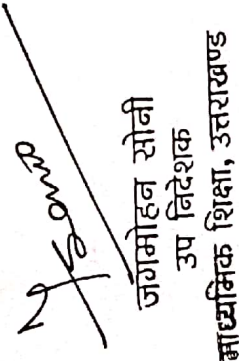 जगमोहन सोनी
उप निदेशक
माध्यमिक शिक्षा, उत्तराखण्ड